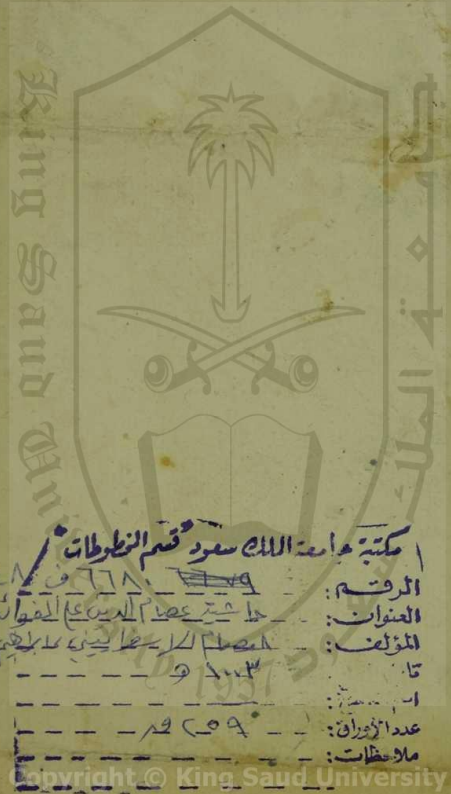 King Saud Uni
جامعة الملك
مكتبة جامعة الملك سعود "قسم المخطوطات"
الرقم: ٦٦٨٠ ف ٨
العنوان: حاشية عصام الدين على الفوائد
المؤلف: عصام الاسفراييني ابراهيم
١٠٠٣ هـ
1957
عدد الأوراق: ٢٥٩ ق
ملاحظات:
Copyright © King Saud University